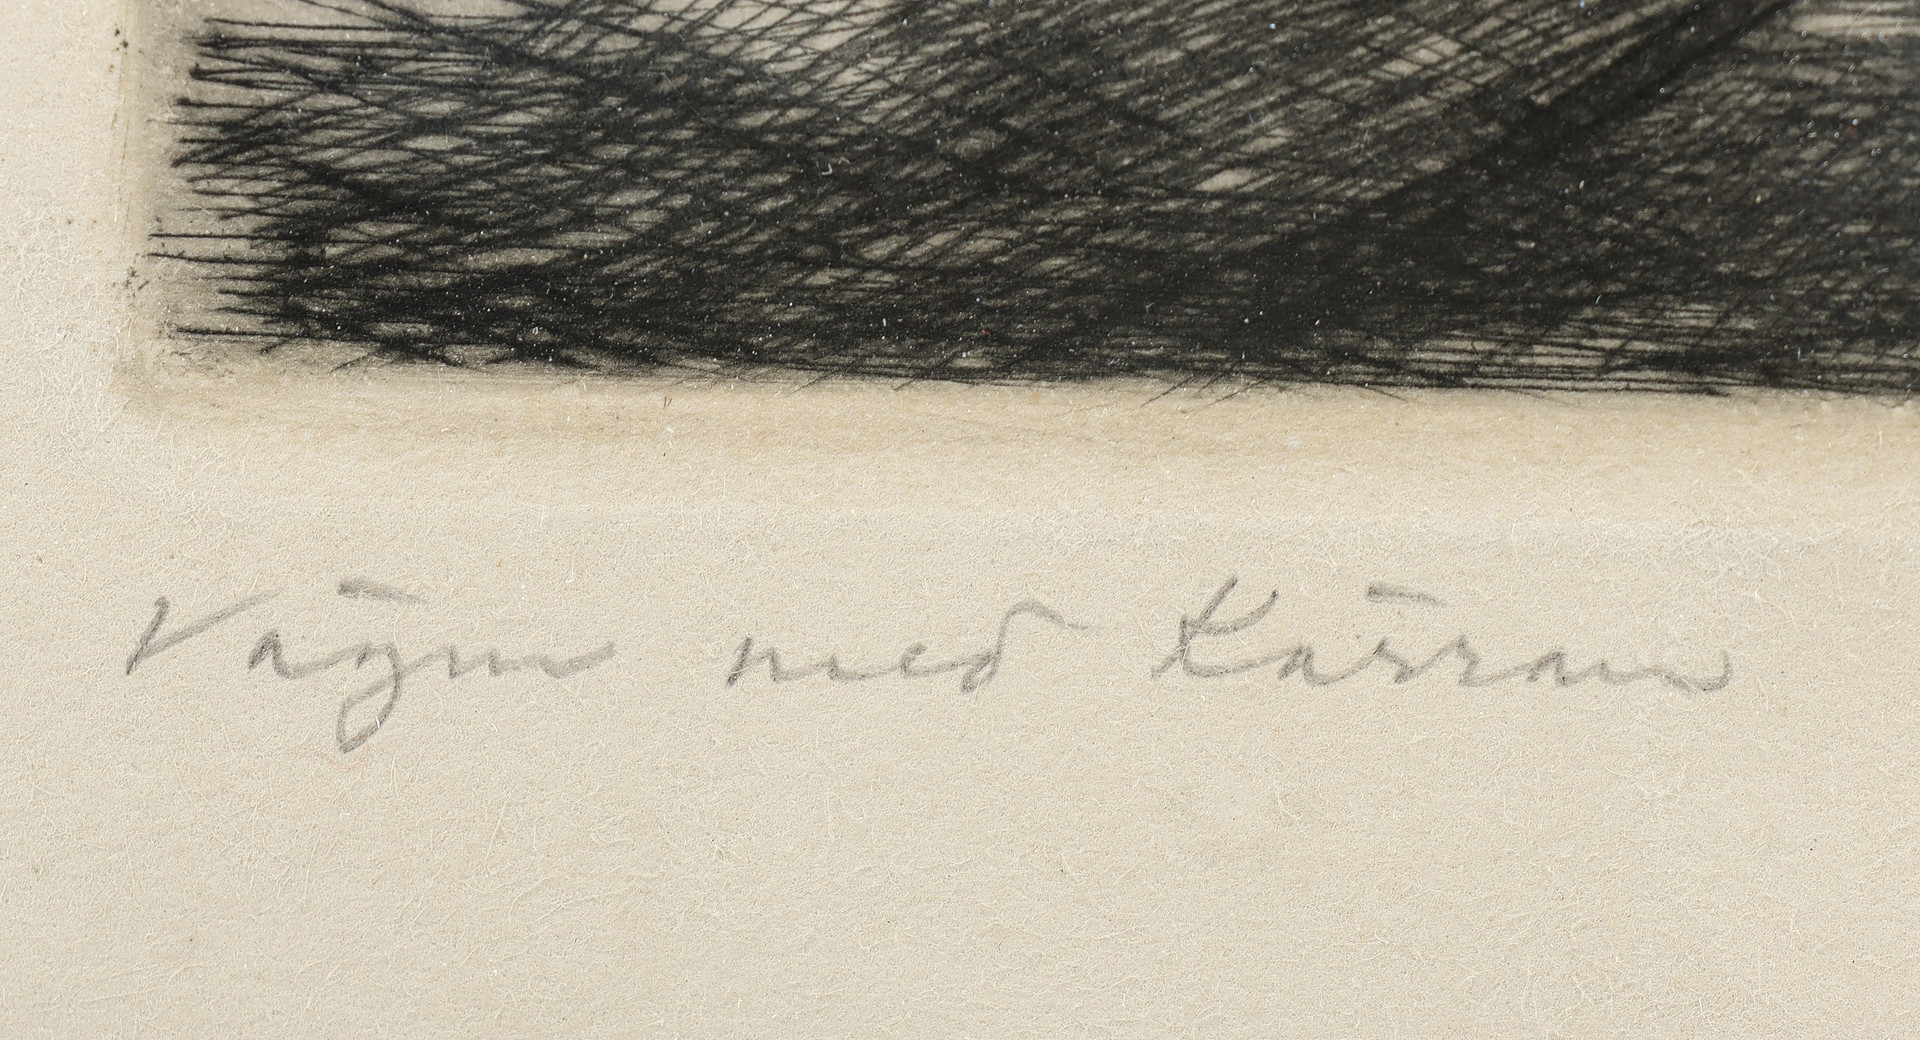 Vägen med Kärran